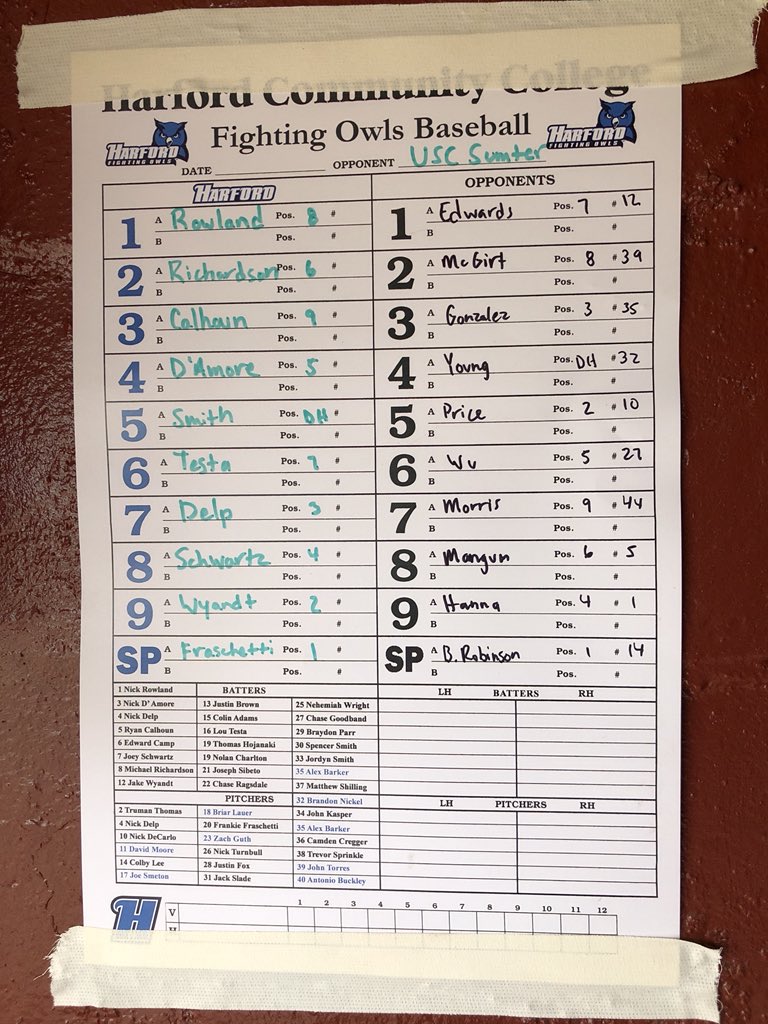 Harford Community College
Fighting Owls Baseball
HARFORD FIGHTING OWLS
HARFORD FIGHTING OWLS
DATE OPPONENT USC Sumter
HARFORD OPPONENTS
1 A Rowland Pos. 8 # 1 A Edwards Pos. 7 # 12
B Pos. # B Pos. #
2 A Richardson Pos. 6 # 2 A McGirt Pos. 8 # 39
B Pos. # B Pos. #
3 A Calhoun Pos. 9 # 3 A Gonzalez Pos. 3 # 35
B Pos. # B Pos. #
4 A D'Amore Pos. 5 # 4 A Young Pos. DH # 32
B Pos. # B Pos. #
5 A Smith Pos. DH # 5 A Price Pos. 2 # 10
B Pos. # B Pos. #
6 A Testa Pos. 7 # 6 A Wu Pos. 5 # 27
B Pos. # B Pos. #
7 A Delp Pos. 3 # 7 A Morris Pos. 9 # 44
B Pos. # B Pos. #
8 A Schwartz Pos. 4 # 8 A Mangun Pos. 6 # 5
B Pos. # B Pos. #
9 A Wyandt Pos. 2 # 9 A Hanna Pos. 4 # 1
B Pos. # B Pos. #
SP A Fraschetti Pos. 1 # SP A B. Robinson Pos. 1 # 14
B Pos. # B Pos. #
1 Nick Rowland BATTERS LH BATTERS RH
3 Nick D'Amore 13 Justin Brown 25 Nehemiah Wright
4 Nick Delp 15 Colin Adams 27 Chase Goodband
5 Ryan Calhoun 16 Lou Testa 29 Braydon Parr
6 Edward Camp 19 Thomas Hojanaki 30 Spencer Smith
7 Joey Schwartz 19 Nolan Charlton 33 Jordyn Smith
8 Michael Richardson 21 Joseph Sibeto 35 Alex Barker
12 Jake Wyandt 22 Chase Ragsdale 37 Matthew Shilling
PITCHERS 32 Brandon Nickel LH PITCHERS RH
2 Truman Thomas 18 Briar Lauer 34 John Kasper
4 Nick Delp 20 Frankie Fraschetti 35 Alex Barker
10 Nick DeCarlo 23 Zach Guth 36 Camden Cregger
11 David Moore 26 Nick Turnbull 38 Trevor Sprinkle
14 Colby Lee 28 Justin Fox 39 John Torres
17 Joe Smeton 31 Jack Slade 40 Antonio Buckley
1 2 3 4 5 6 7 8 9 10 11 12
H V